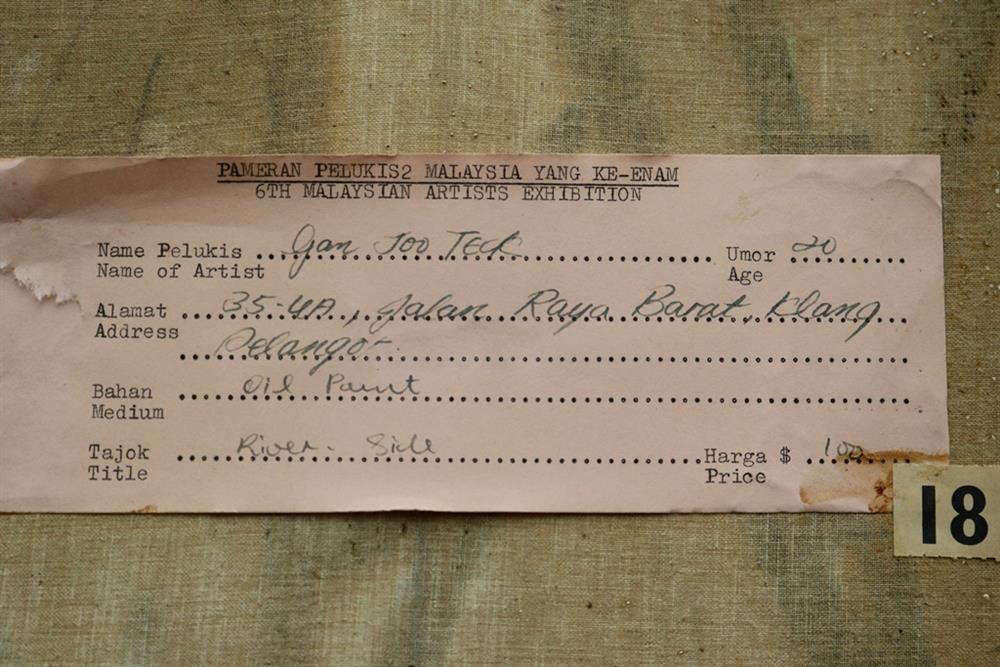 PAMERAN PELUKIS2 MALAYSIA YANG KE-ENAM
6TH MALAYSIAN ARTISTS EXHIBITION
Name Pelukis Gan Joo Teck Umor 20
Name of Artist Age
Alamat 35-4A, Jalan Raya Barat, Klang
Address
Selangor
Bahan Oil Paint
Medium
Tajok River-Side Harga $ 100
Title Price
18